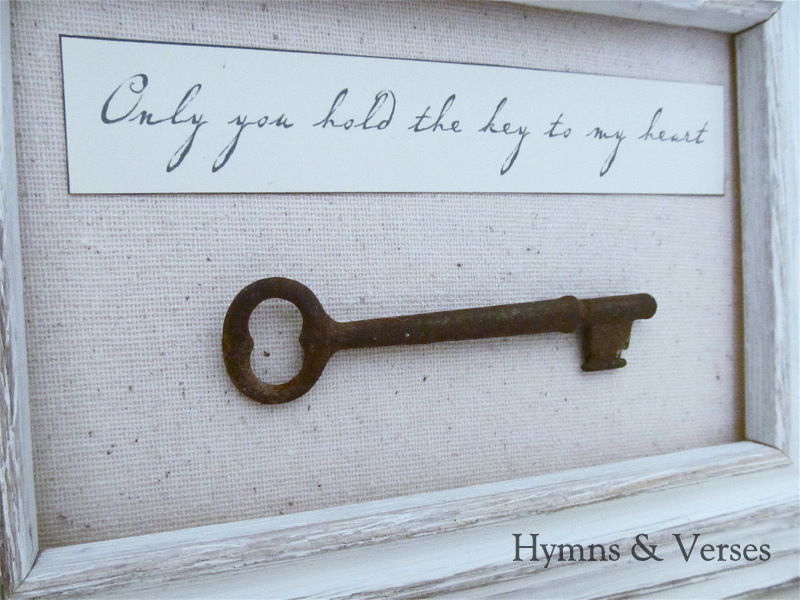 Only you hold the key to my heart
Hymns & Verses